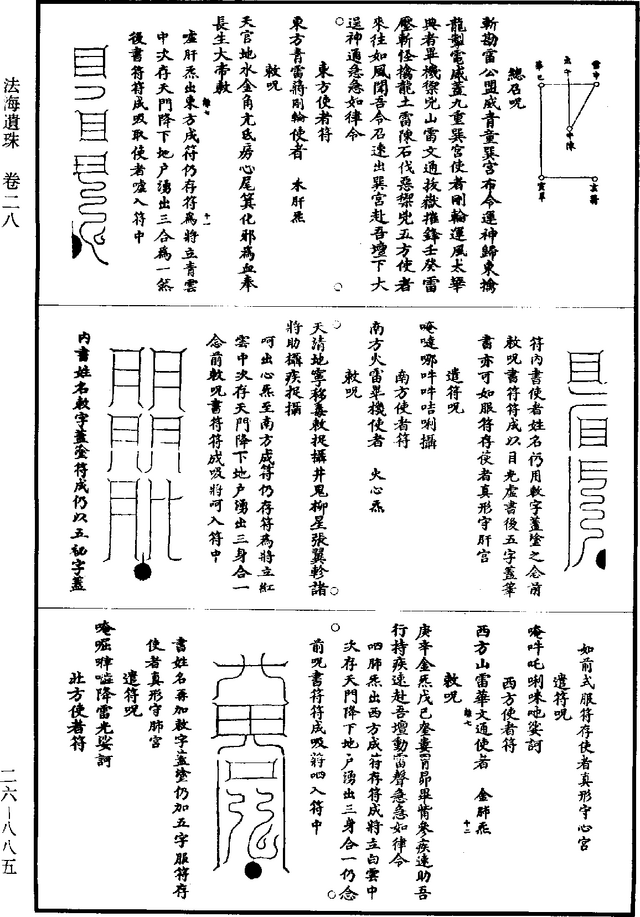 法海遺珠 卷二八
二六—八八五
雷中
玄午
中陳
華巳
寅單
玄癸
總召呪
斬勘雷公盟威青童巽宮布令運神歸東擒
龍掣電威蓋九重巽宮使者剛輪運風太華
典者單機禦兇山雷文通拔嶽摧鋒壬癸雷
壓斬怪擒龍土雷陳石伐惡禦兇五方使者
來往如風聞吾令召速出巽宮赴吾壇下大
逞神通急急如律令
東方使者符
東方青雷蔣剛輪使者 木肝炁
敕呪
天官地水金角亢氐房心尾箕化邪為血奉
長生大帝敕
噓肝炁出東方成符仍存符為將立青雲
中次存天門降下地戶湧出三合為一然
後書符符成吸取使者噓入符中
符內書使者姓名仍用敕字蓋塗之念前
敕呪書符符成以目光虛書後五字蓋筆
書亦可如服符存使者真形守肝宮
遣符呪
唵噠哪吽吽咭唎攝
南方使者符
南方火雷單機使者 火心炁
敕呪
天清地寧移毒敕捉攝井鬼柳星張翼軫諸
將助攝疾捉攝
呵出心炁至南方成符仍存符為將立紅
雲中次存天門降下地戶湧出三身合一
念前敕呪書符符成吸將呵入符中
內書姓名敕字蓋塗符成仍以五初字蓋
如前式服符存使者真形守心宮
遣符呪
唵吽吒唎咪吔娑訶
西方使者符
西方山雷華文通使者 金肺炁
敕呪
庚辛金炁戊己奎婁胃昴畢觜參疾速助吾
行持疾速赴吾壇動雷聲急急如律令
呬肺炁出西方成符存符成將立白雲中
次存天門降下地戶湧出三身合一仍念
前呪書符符成吸將呬入符中
書姓名再加敕字蓋塗仍加五字服符存
使者真形守肺宮
遣符呪
唵堀嘽嗌降雷光娑訶
北方使者符